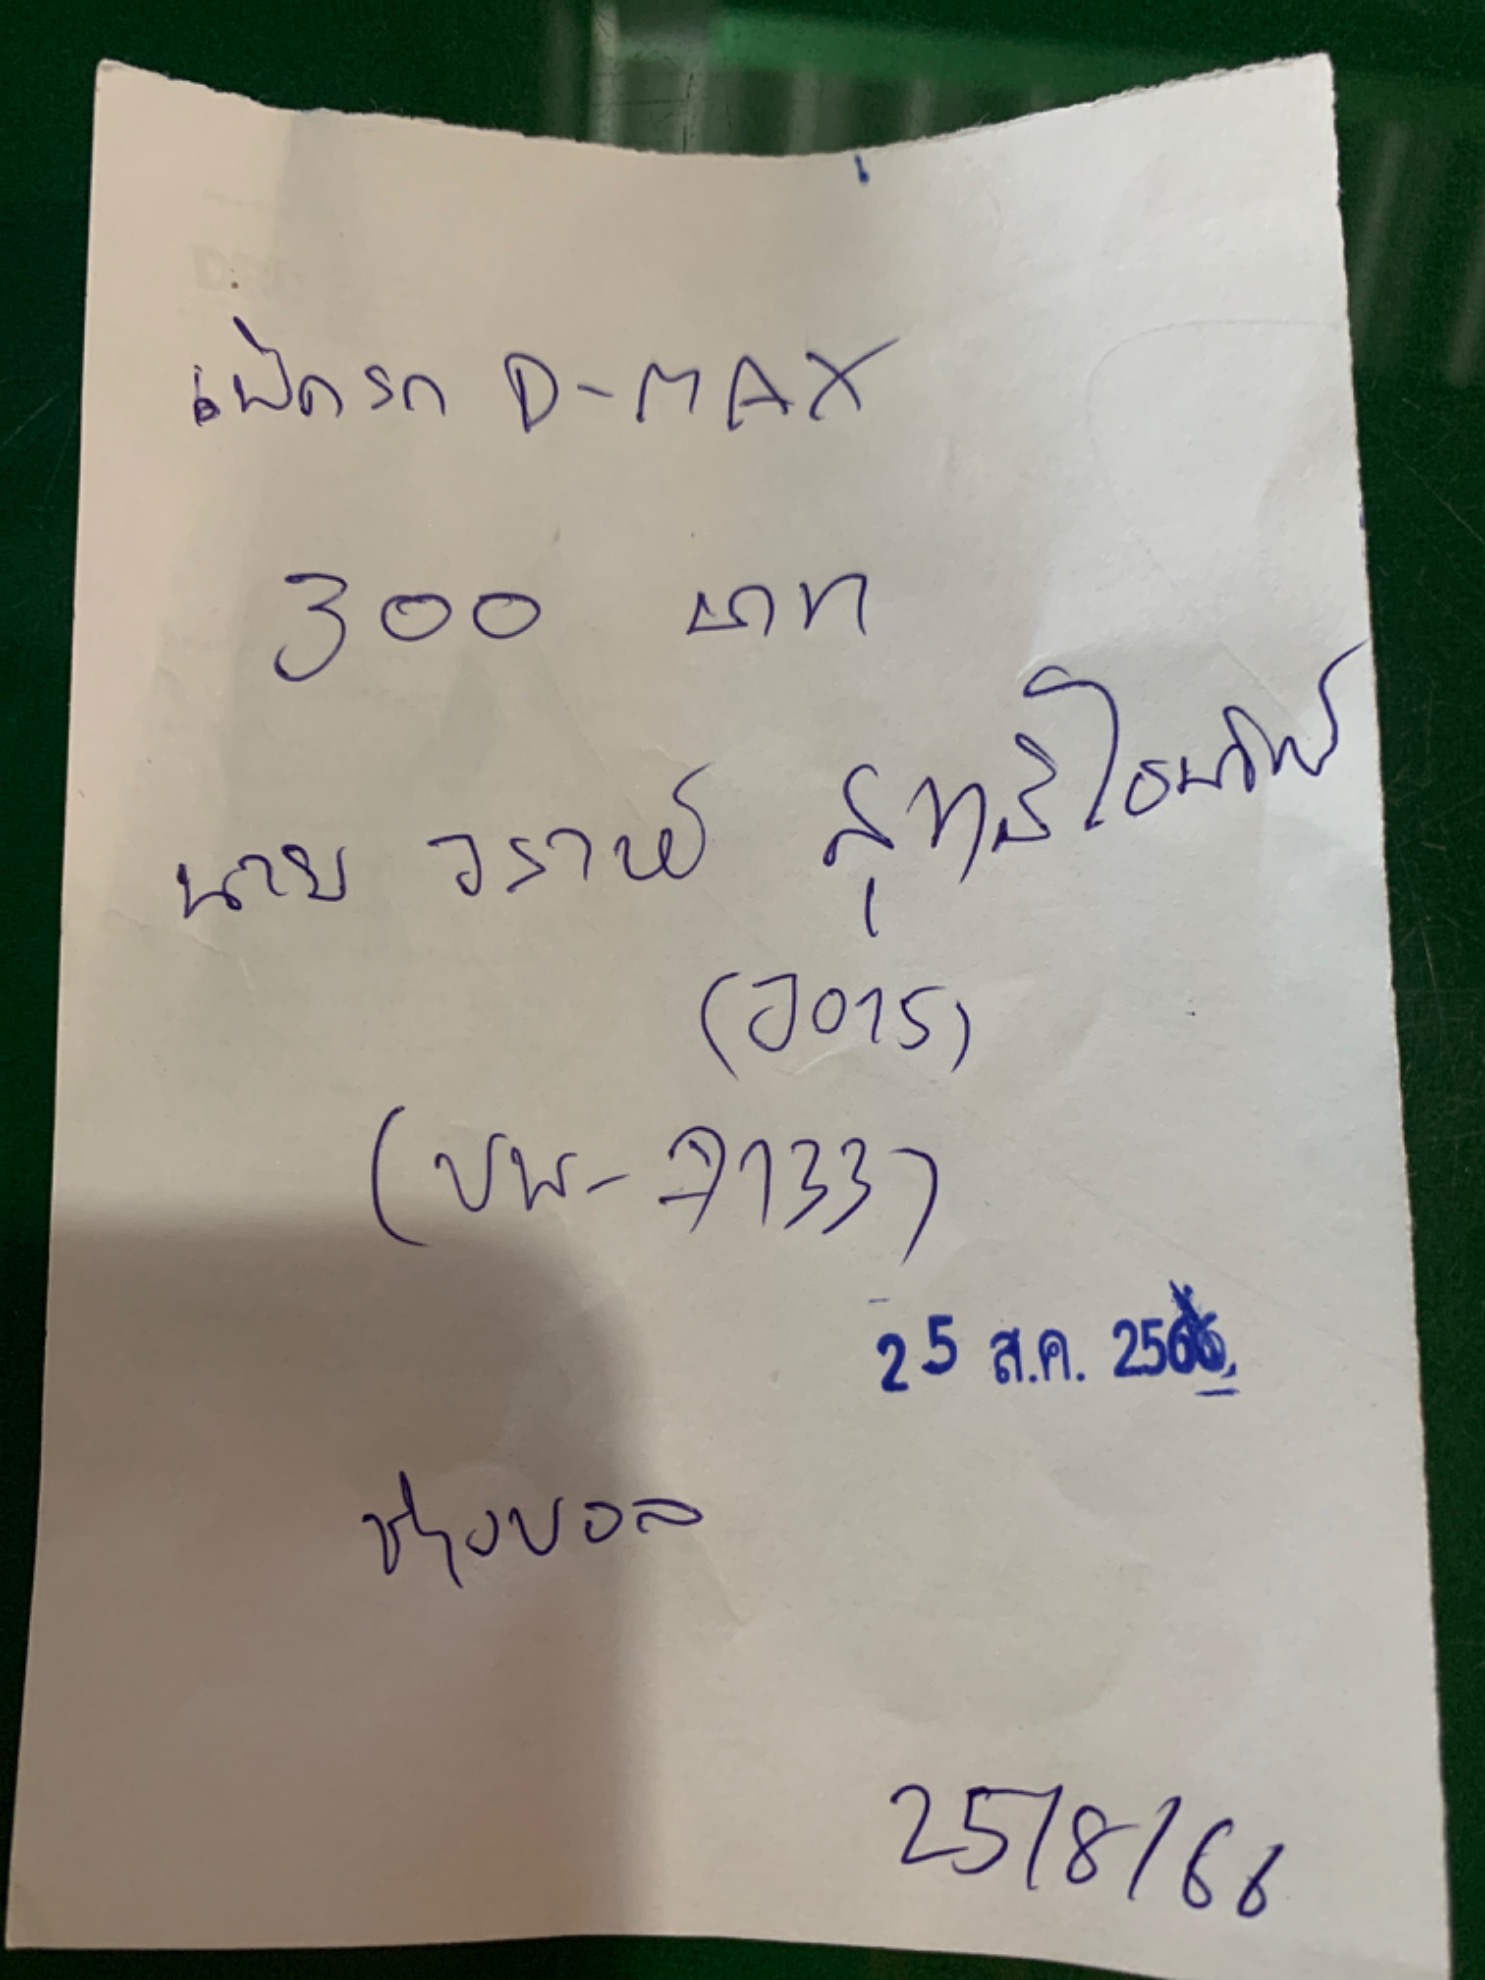 เปิดรถ D-MAX
300 บาท
นาย วราห์ สุทธิ
(อาร)
(บพ-7133)
25 ส.ค. 2566
ช่างบอล
25/8/66